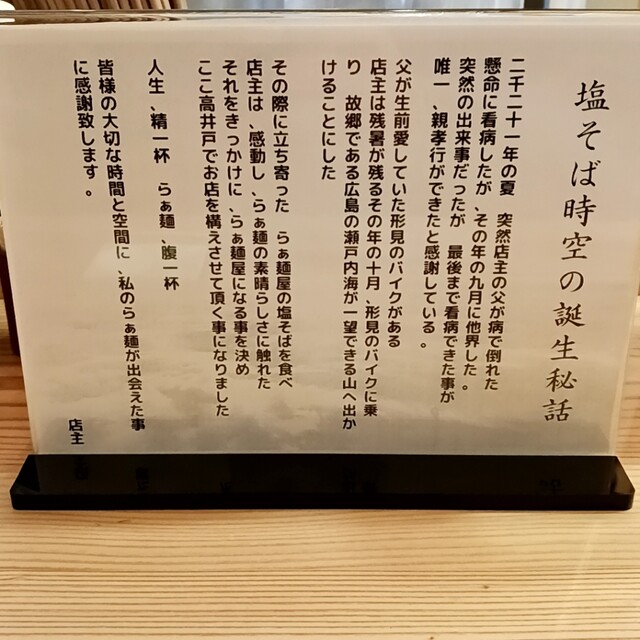 塩そば時空の誕生秘話
二千二十一年の夏　突然店主の父が病で倒れた
懸命に看病したが、その年の九月に他界した。
突然の出来事だったが　最後まで看病できた事が
唯一、親孝行ができたと感謝している。
父が生前愛していた形見のバイクがある
店主は残暑が残るその年の十月、形見のバイクに乗
り　故郷である広島の瀬戸内海が一望できる山へ出か
けることにした
その際に立ち寄った　らぁ麺屋の塩そばを食べ
店主は、感動し、らぁ麺の素晴らしさに触れた
それをきっかけに、らぁ麺屋になる事を決め
ここ高井戸でお店を構えさせて頂く事になりました
人生、精一杯　らぁ麺、腹一杯
皆様の大切な時間と空間に、私のらぁ麺が出会えた事
に感謝致します。
店主